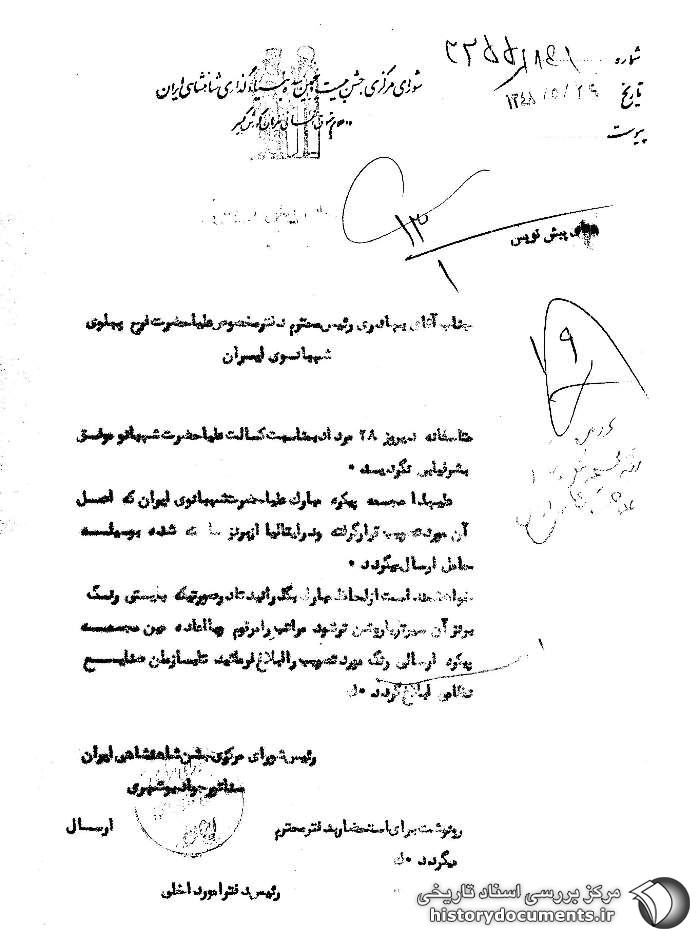 شماره ۲۲۵۵/۸۴۱
تاریخ ۱۳۴۸/۵/۲۹
پیوست
شورای مرکزی جشن بیست و پنجمین سده بنیادگذاری شاهنشاهی ایران
پیش نویس
۱۳
۱
۱۹
جناب آقای بهادری رئیس محترم دفتر مخصوص علیاحضرت فرح پهلوی
شهبانوی ایران
متاسفانه دیروز ۲۸ مرداد بمناسبت کسالت علیاحضرت شهبانو موفق
بشرفیابی نگردید .
علیهذا مجسمه پیکره مبارک علیاحضرت شهبانوی ایران که اصل
آن مورد تصویب قرار گرفته و در ایتالیا از برنز ساخته شده بوسیله
حامل ارسال میگردد .
خواهشمند است از لحاظ مبارک بگذرانید تا در صورتیکه بایستی رنگ
برنز آن سیرتر یا روشن تر شود مراتب را مرقوم و با اعاده عین مجسمه
پیکره ارسالی رنگ مورد تصویب را ابلاغ فرمائید تا بسازمان صنایع
نظامی ابلاغ گردد .ک
رئیس شورای مرکزی جشن شاهنشاهی ایران
سناتور جواد بوشهری
رونوشت برای استحضار بدفتر محترم ارسال
میگردد .ک
رئیس دفتر امور داخلی
مرکز بررسی اسناد تاریخی
historydocuments.ir